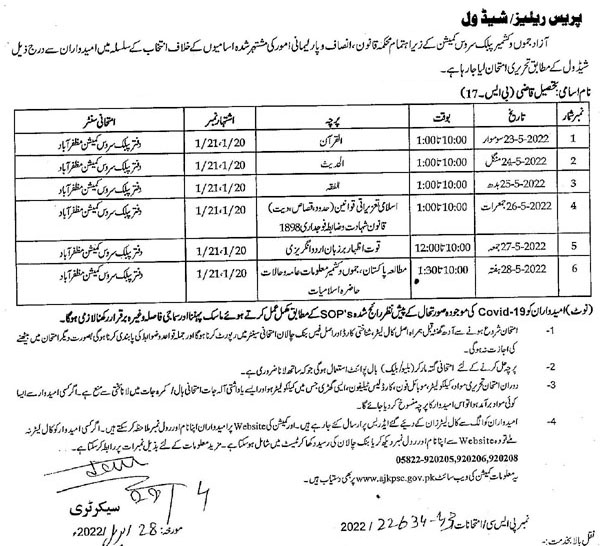 پریس ریلیز/شیڈول
آزاد جموں و کشمیر پبلک سروس کمیشن کے زیر اہتمام محکمہ قانون، انصاف و پارلیمانی امور کی مشتہر شدہ اسامیوں کے خلاف انتخاب کے سلسلہ میں امیدواران سے درج ذیل
شیڈول کے مطابق تحریری امتحان لیا جا رہا ہے۔
نام اسامی: تحصیل قاضی (بی ایس۔17)
نمبر شمار تاریخ بوقت پرچہ اشتہار نمبر امتحانی سنٹر
1 23-5-2022 سوموار 10:00 تا 1:00 القرآن 1/20، 1/21 دفتر پبلک سروس کمیشن مظفرآباد
2 24-5-2022 منگل 10:00 تا 1:00 الحدیث 1/20، 1/21 دفتر پبلک سروس کمیشن مظفرآباد
3 25-5-2022 بدھ 10:00 تا 1:00 الفقہ 1/20، 1/21 دفتر پبلک سروس کمیشن مظفرآباد
4 26-5-2022 جمعرات 10:00 تا 1:00 اسلامی تعزیراتی قوانین (حدود و قصاص، دیت) 1/20، 1/21 دفتر پبلک سروس کمیشن مظفرآباد
قانون شہادت و ضابطہ فوجداری 1898
5 27-5-2022 جمعہ 10:00 تا 12:00 قوت اظہار بر زبان اردو انگریزی 1/20، 1/21 دفتر پبلک سروس کمیشن مظفرآباد
6 28-5-2022 ہفتہ 10:00 تا 1:30 مطالعہ پاکستان، جموں و کشمیر معلومات عامہ و حالات 1/20، 1/21 دفتر پبلک سروس کمیشن مظفرآباد
حاضرہ اسلامیات
(نوٹ) امیدواران کو Covid-19 کی موجودہ صورتحال کے پیش نظر رائج شدہ SOP's کے مطابق مکمل عمل کرتے ہوئے ماسک پہننا اور سماجی فاصلہ وغیرہ برقرار رکھنا لازمی ہوگا۔
1- امتحان شروع ہونے سے آدھ گھنٹہ قبل ہمراہ اصل کال لیٹر، شناختی کارڈ اور اصل فیس بنک چالان امتحانی سینٹر میں رپورٹ کرنا ہوگا اور جملہ قواعد و ضوابط کی پابندی کرنا ہوگی بصورت دیگر امتحان میں بیٹھنے
کی اجازت نہ ہوگی۔
2- پرچہ حل کرنے کے لئے امتحانی گتہ، مارکر (بلیو/بلیک) بال پوائنٹ استعمال ہوگی جو کہ ساتھ لانا ضروری ہے۔
3- دوران امتحان تحریری مواد، کیلکولیٹر، موبائل فون، کارڈلیس ٹیلیفون، ایسی گھڑی جس میں کیلکولیٹر ہو اور ایسے یادداشتی آلہ جات امتحانی ہال/کمرہ جات میں لانا سختی سے منع ہے۔ اگر کسی امیدوار سے ایسا
کوئی مواد برآمد ہوا تو اس امیدوار کا پرچہ منسوخ کر دیا جائے گا۔
4- امیدواران کو الگ سے کال لیٹرز ان کے دیئے گئے ایڈریس پر ارسال کئے جا رہے ہیں۔ اور کمیشن کی Website پر امیدواران اپنا نام اور رول نمبر ملاحظہ کر سکتے ہیں۔ اگر کسی امیدوار کو کال لیٹر نہ
ملے تو وہ Website سے اپنا نام اور رول نمبر دیکھ کر اپنا بنک چالان کی رسید دکھا کر ٹیسٹ میں شامل ہو سکتا ہے۔ مزید معلومات کے لئے بذیل نمبرات پر رابطہ کر سکتا ہے۔
05822-920205,920206,920208
یہ معلومات کمیشن کی ویب سائٹ www.ajkpsc.gov.pk پر بھی دستیاب ہیں۔
سیکرٹری
مورخہ: 28 اپریل/2022ء
نمبر پی ایس سی/امتحانات/ 2022
نقل بالا بخدمت:-